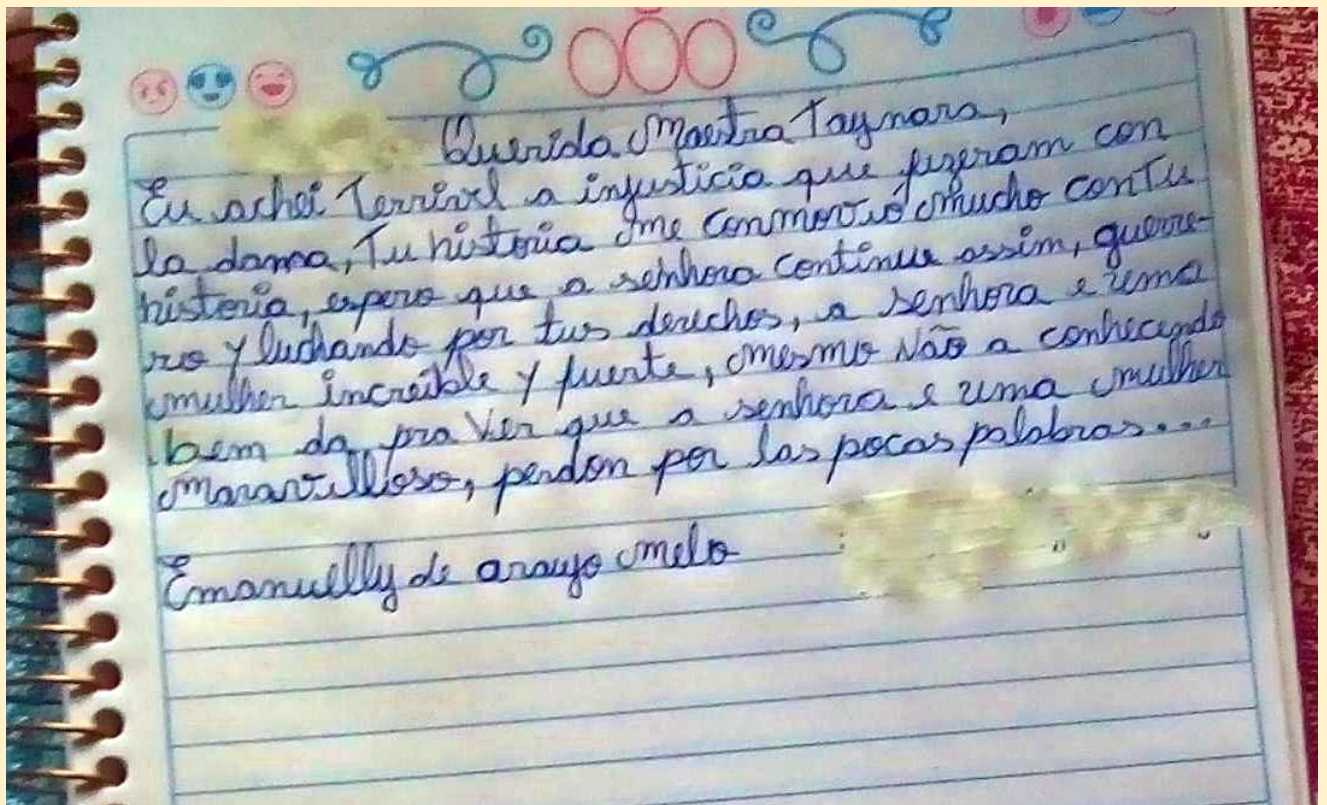 Querida Maestra Taynara,
Eu achei Terrivel a injusticia que fizeram con
la dama, Tu historia me conmovió mucho con Tu
historia, espero que a senhora continue assim, guerre-
ro y luchando por tus derechos, a senhora e uma
mulher increible y fuerte, mesmo Não a conhecendo
bem da pra Ver que a senhora e uma mulher
maravilloso, perdon por las pocas palabras...
Emanuelly de araujo melo